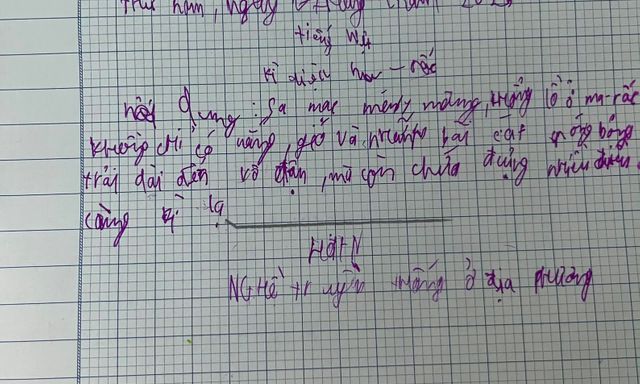 Thứ năm, ngày
tiếng Việt
Kì diệu Ma-rốc
nội dung: Sa mạc mênh mông, ở Ma-rốc
không chỉ có nắng, gió và những bãi cát nóng bỏng
trải dài đến vô tận, mà còn chứa đựng nhiều điều
càng kì lạ
HĐTN
NGHề truyền thống ở địa phương